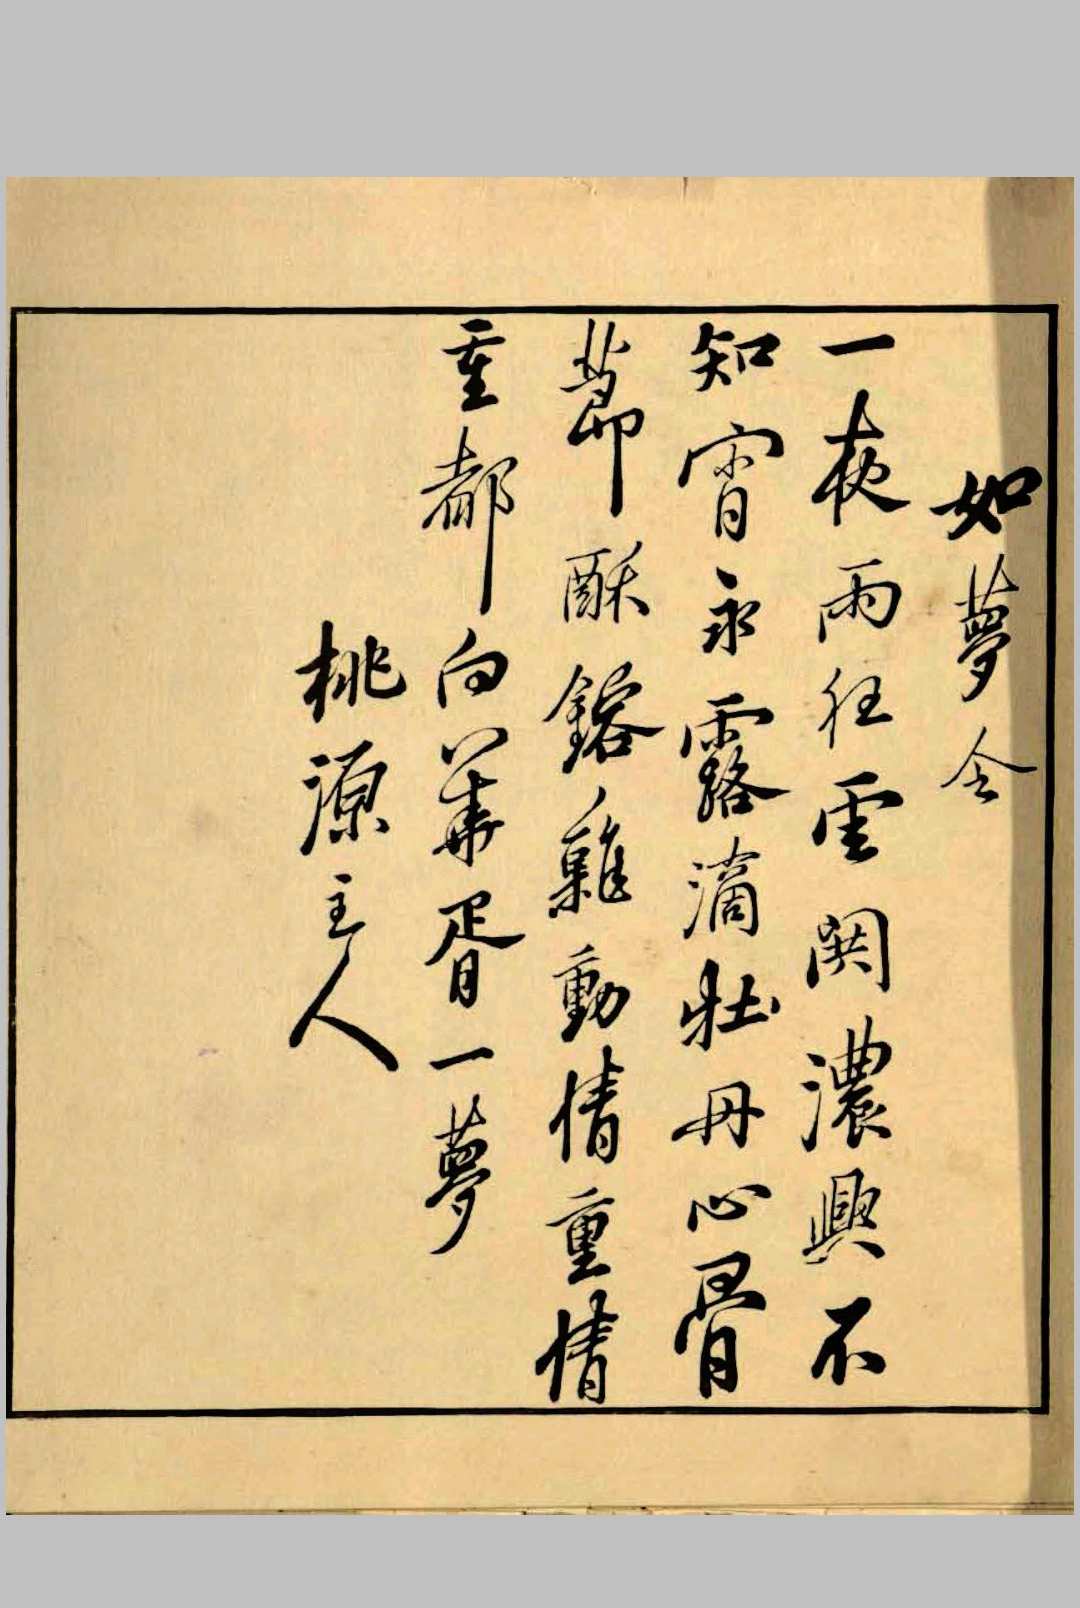 如夢令
一夜雨狂雲閧濃興不
知宵永露滴牡丹心骨
節酥鎔難動情重情
重都向華胥一夢
桃源主人